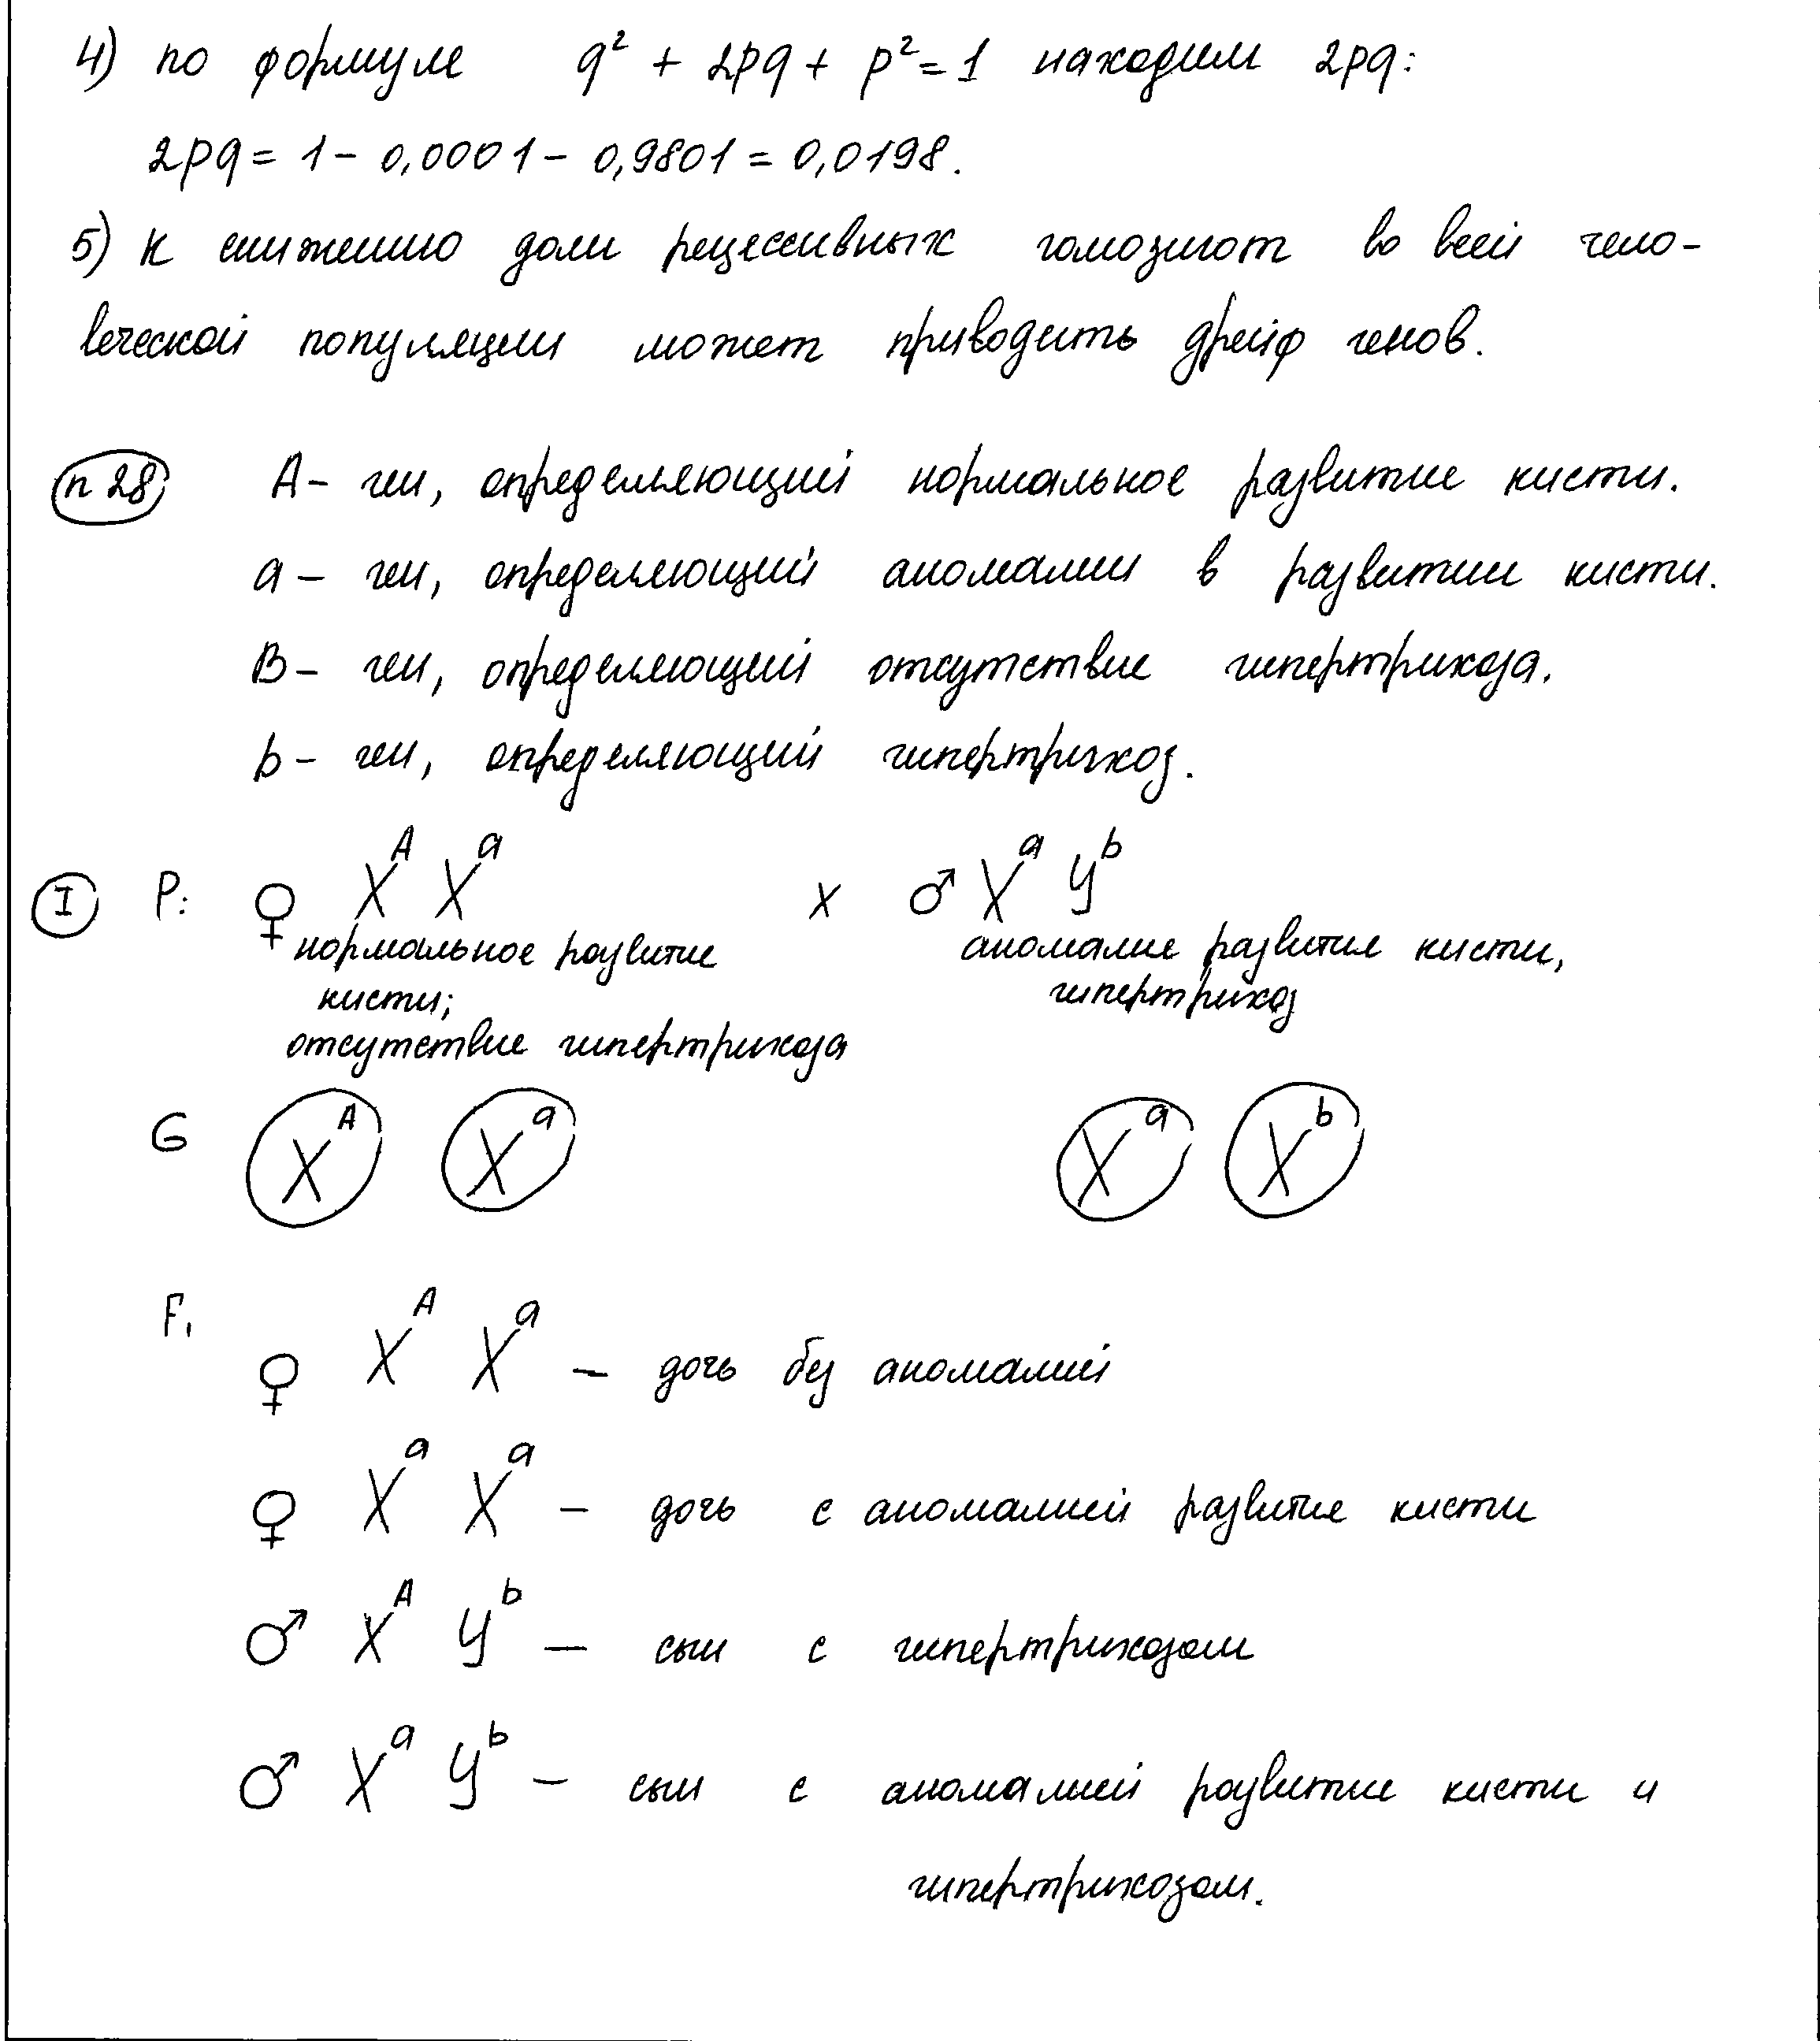 4) по формуле q² + 2pq + p² = 1 находим 2pq:
2pq = 1 - 0,0001 - 0,9801 = 0,0198.
5) К снижению доли рецессивных гомозигот во всей чело-
веческой популяции может приводить дрейф генов.
n 28 A - ген, определяющий нормальное развитие кисти.
a - ген, определяющий аномалии в развитии кисти.
B - ген, определяющий отсутствие гипертрихоза.
b - ген, определяющий гипертрихоз.
I P: ♀ Xᴬ Xᵃ x ♂ Xᵃ Yᵇ
нормальное развитие аномалие развитие кисти,
кисти; гипертрихоз
отсутствие гипертрихоза
G Xᴬ Xᵃ Xᵃ Xᵇ
F₁
♀ Xᴬ Xᵃ - дочь без аномалий
♀ Xᵃ Xᵃ - дочь с аномалией развитие кисти
♂ Xᴬ Yᵇ - сын с гипертрихозом
♂ Xᵃ Yᵇ - сын с аномалией развитие кисти и
гипертрихозом.